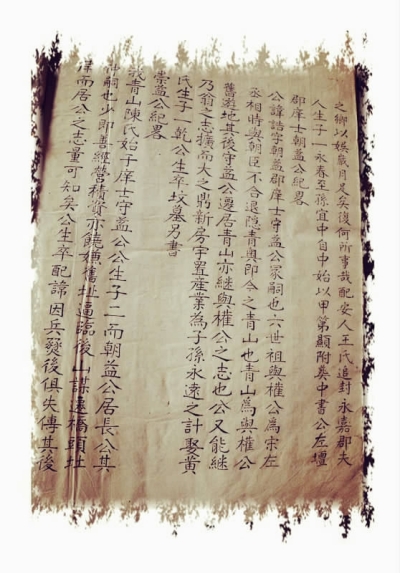 之鄉以娛歲月足矣復何所事哉配安人王氏追封永嘉郡夫
人生子一永春至孫宜中自中始以甲第顯附葬中書公左壇
郡庠士朝益公紀畧
公諱諮字朝益郡庠守益公冢嗣也六世祖與權公為宋左
丞相時與朝臣不合退隱青奧即今之青山也青山為與權公
舊遊地其後守益公遷居青山亦繼與權公之志也公又能繼
乃翁之志擴而大之鼎新房宇置產業為子孫永遠之計娶黃
氏生子一乾公生卒墳墓另書
崇益公紀畧
我青山陳氏始于庠士守益公公生子二而朝益公居長公其
仲嗣也少即善經營積資亦饒嫌舊址逼臨後山謀遷橋頭址
肆而居公之志量可知矣公生卒配諦因兵燹後俱失傳其後